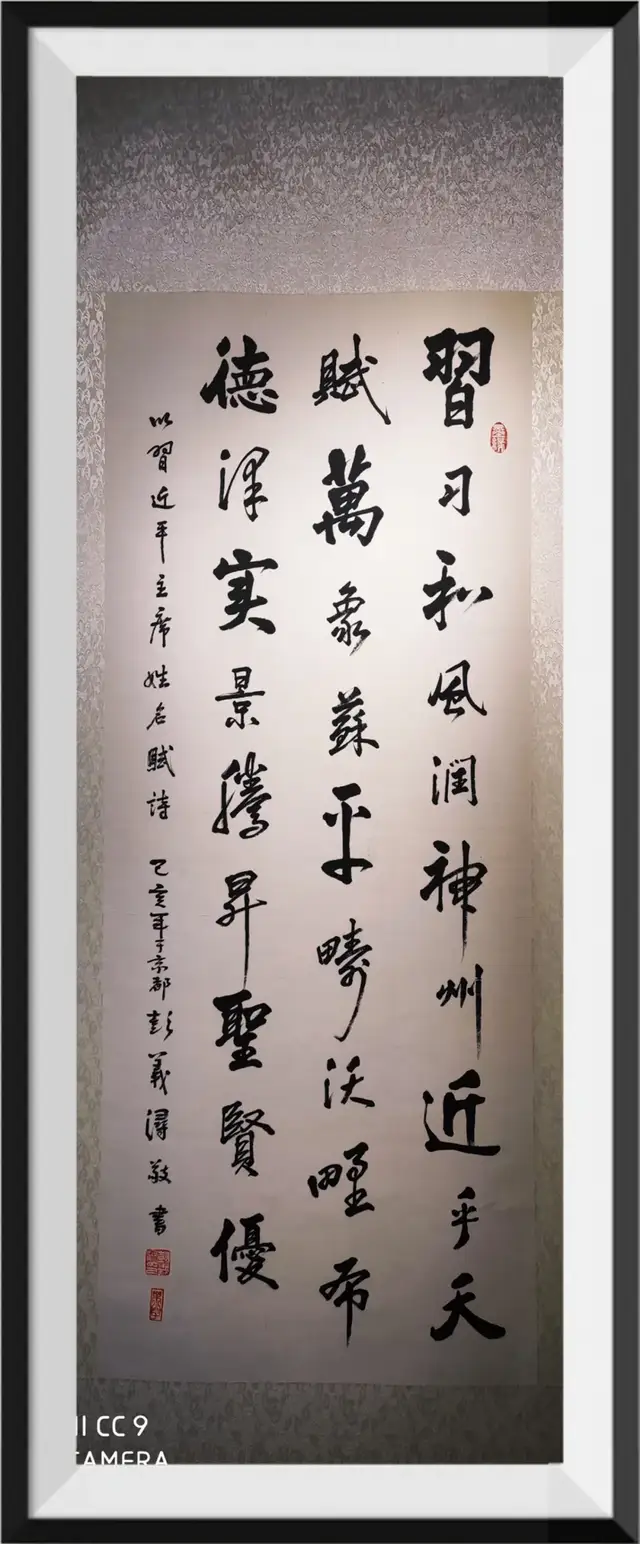 習习和風润神州近乎天
賦萬象蘇平畴沃野布
德泽实景騰昇聖賢優
以習近平主席姓名賦詩 己亥年于京都彭義浔敬書
CC 9
CAMERA